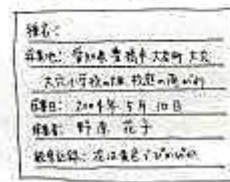 種名:
採集地: 愛知県豊橋市大岩町大穴
大穴小学校の畑、校庭の南がわ
採集日: 2004年 5月 10日
採集者: 野原 花子
観察記録: 花は黄色で